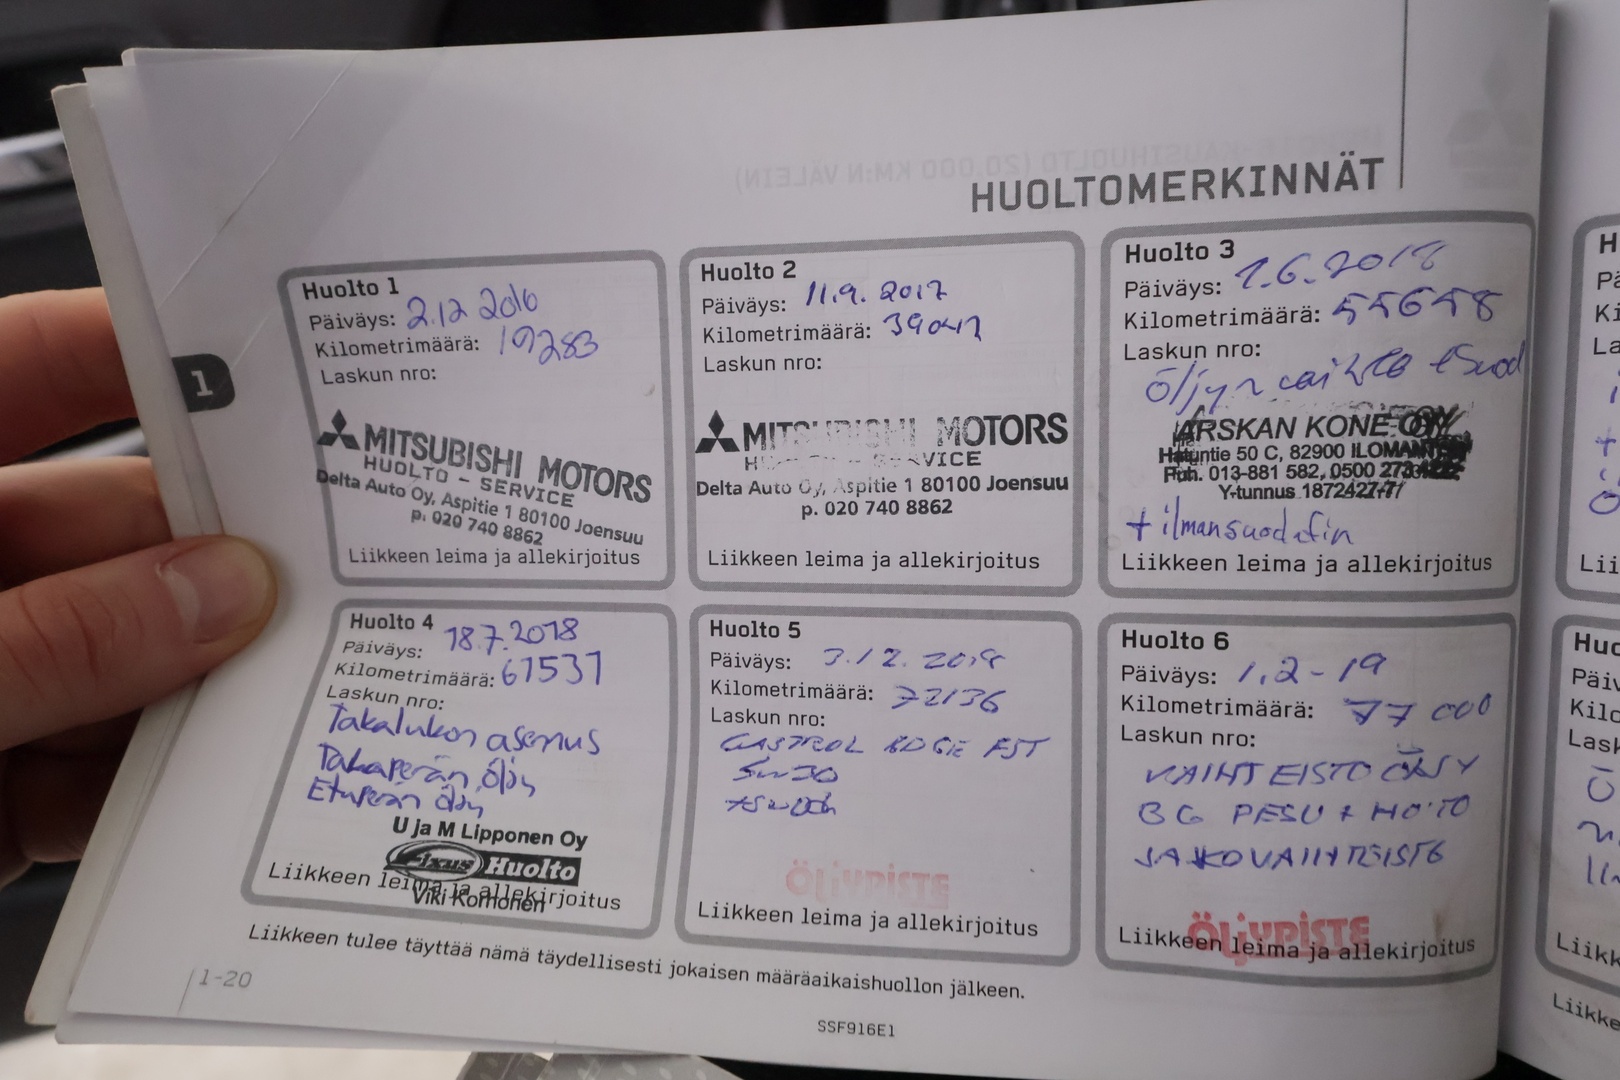 HUOLTOMERKINNÄT
1
Huolto 1
Päiväys: 2.12 2016
Kilometrimäärä: 19283
Laskun nro:
MITSUBISHI MOTORS
HUOLTO - SERVICE
Delta Auto Oy, Aspitie 1 80100 Joensuu
p. 020 740 8862
Liikkeen leima ja allekirjoitus
Huolto 2
Päiväys: 11.9. 2017
Kilometrimäärä: 39047
Laskun nro:
MITSUBISHI MOTORS
HUOLTO - SERVICE
Delta Auto Oy, Aspitie 1 80100 Joensuu
p. 020 740 8862
Liikkeen leima ja allekirjoitus
Huolto 3
Päiväys: 1.6.2018
Kilometrimäärä: 55658
Laskun nro:
öljyn vaihto
ARSKAN KONE OY
Hatuntie 50 C, 82900 ILOMANTSI
Puh. 013-881 582, 0500
Y-tunnus 1872427-7
+ ilmansuodatin
Liikkeen leima ja allekirjoitus
Huolto 4
Päiväys: 18.7.2018
Kilometrimäärä: 61531
Laskun nro:
Takalukon asennus
Takaperän öljy
Etuperän öljy
U ja M Lipponen Oy
Fixus Huolto
Liikkeen leima ja allekirjoitus
Viki Korhonen
Huolto 5
Päiväys: 3.12.2018
Kilometrimäärä: 72136
Laskun nro:
CASTROL EDGE FST
5W30
ÖLJYPISTE
Liikkeen leima ja allekirjoitus
Huolto 6
Päiväys: 1.2-19
Kilometrimäärä: 77 000
Laskun nro:
VAIHTEISTO ÖLJY
BG PESU + HOITO
JAKOVAIHTEISTO
ÖLJYPISTE
Liikkeen leima ja allekirjoitus
Liikkeen tulee täyttää nämä täydellisesti jokaisen määräaikaishuollon jälkeen.
1-20
SSF916E1